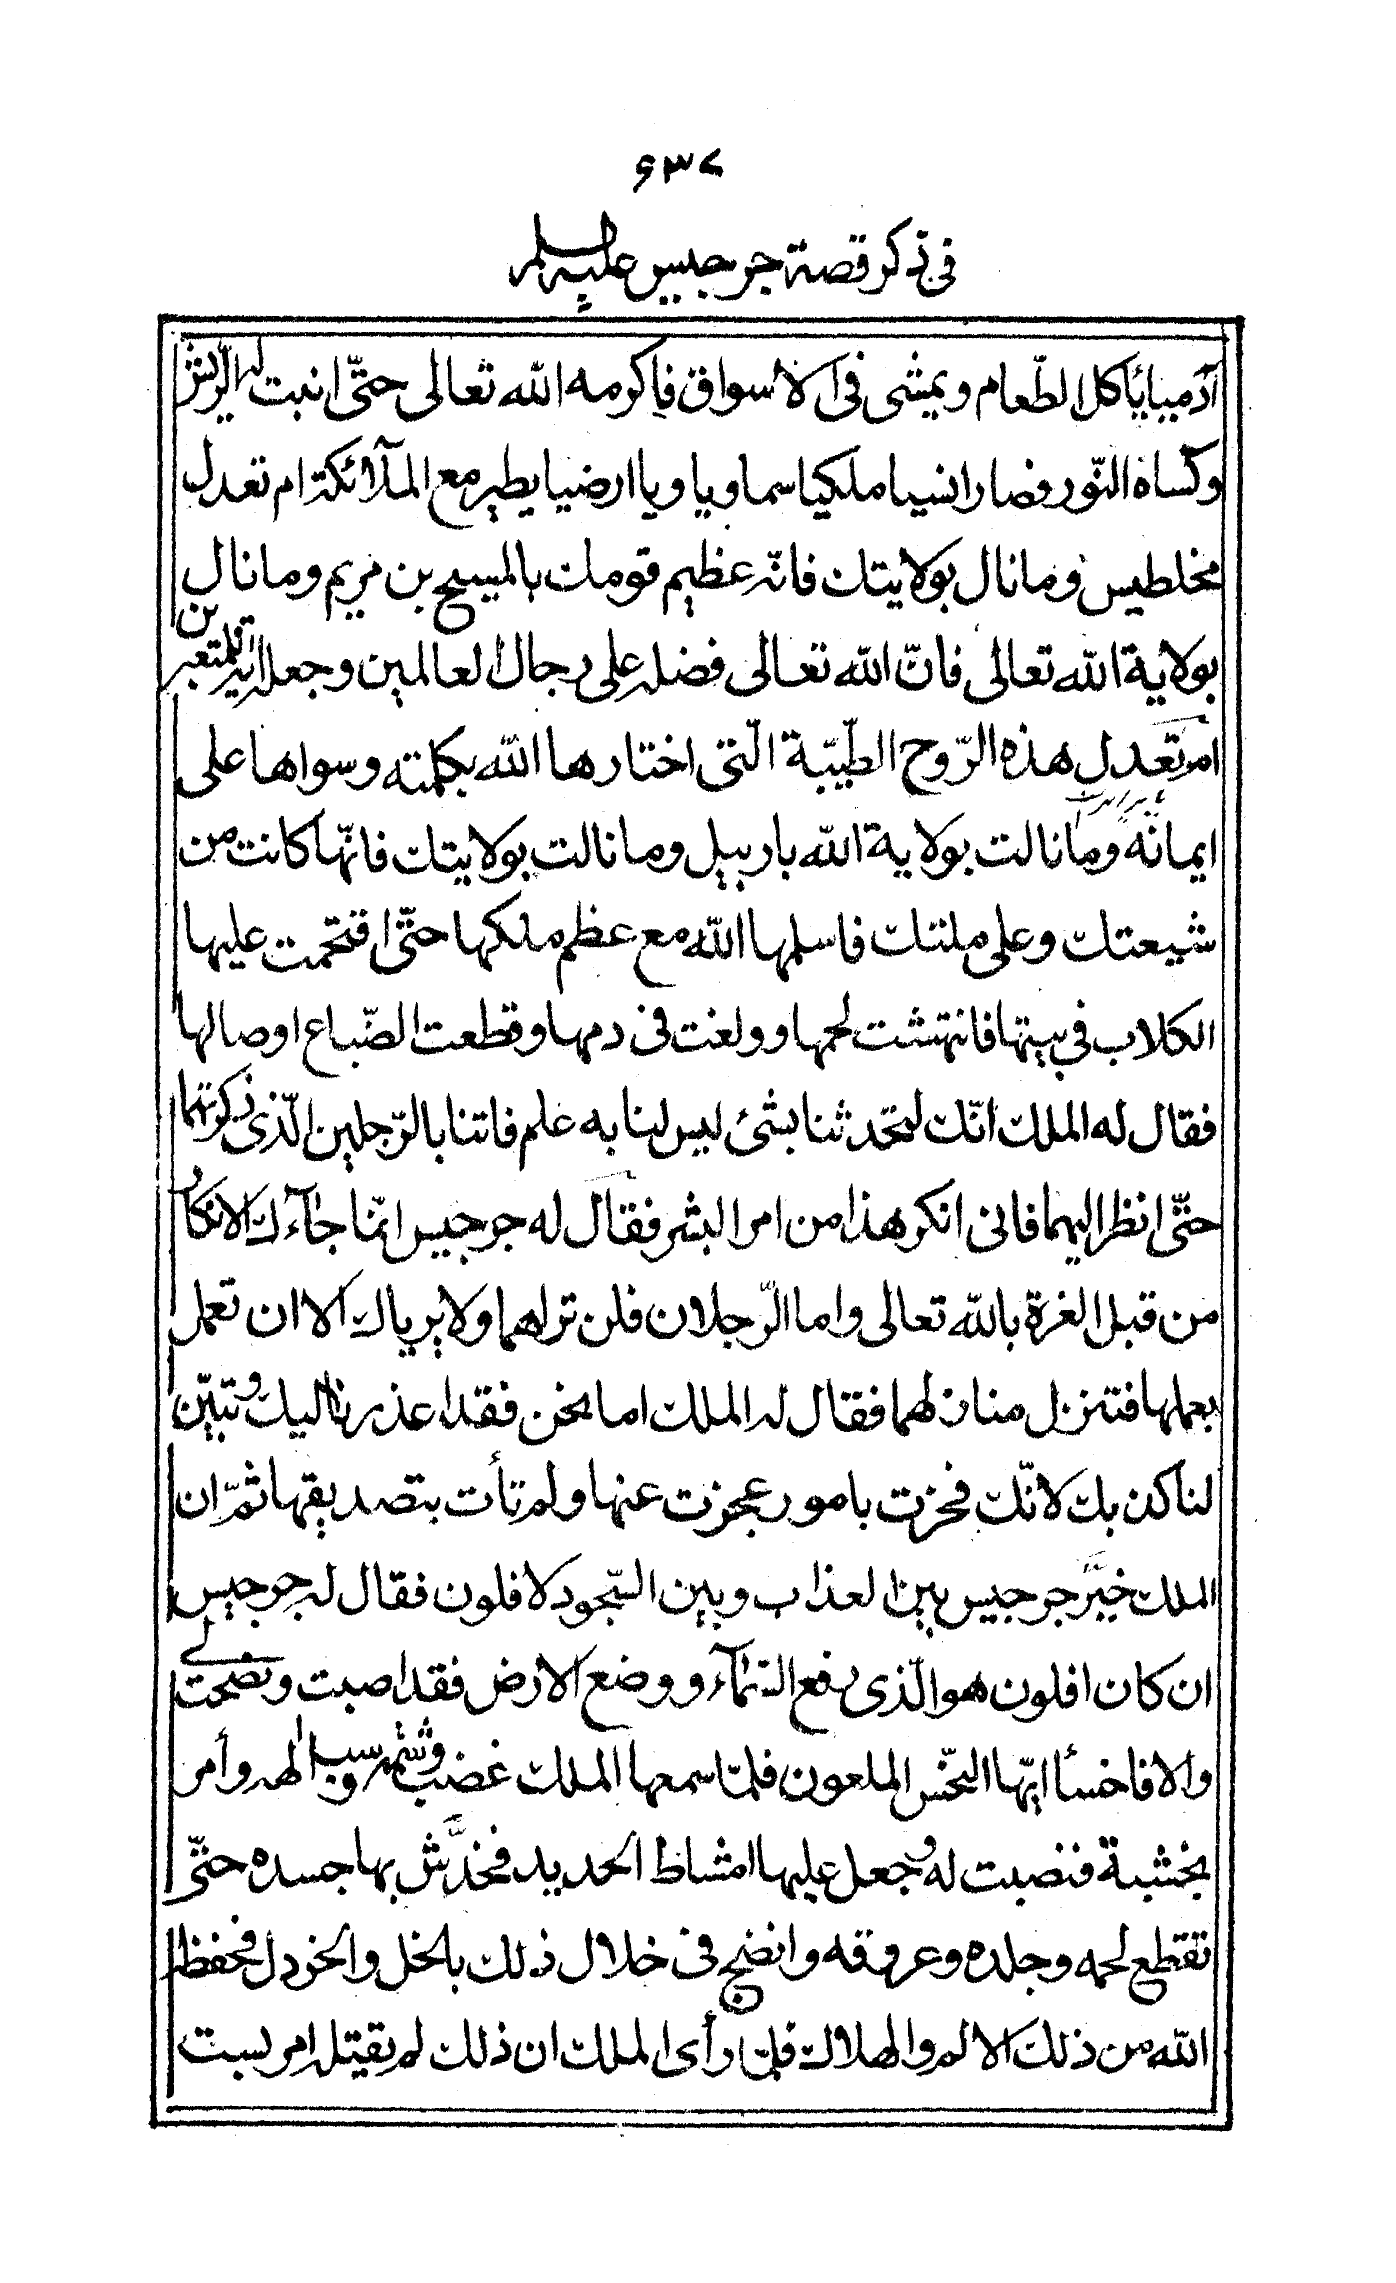 ۶۳۷
فی ذکر قصة جرجیس علیه السلم
آدمیا یأکل الطّعام ویمشی فی الاسواق فاکرمه الله تعالی حتّی انبت له الرّیش
وکساه النّور فصار انسیا ملکیا سماویا ویا ارضیا یطیر مع الملآئکة ام تعدل
مخلطیس وما نال بولایتك فانّه عظیم قومك بالمسیح بن مریم وما نال
بولایة الله تعالی فانّ الله تعالی فضله علی رجال العالمین وجعله آیة للمتعبرین
ام تعدل هذه الرّوح الطّیّبة الّتی اختارها الله بکلمته وسواها علی
ایمانه وما نالت بولایة الله باربیل وما نالت بولایتك فانّها کانت من
شیعتك وعلی ملتك فاسلمها الله مع عظم ملکها حتّی اقتحمت علیها
الکلاب فی بیتها فانتهشت لحمها وولغت فی دمها وقطعت الضّباع اوصالها
فقال له الملك انّك لتحدثنا بشئ لیس لنا به علم فاتنا بالرّجلین الّذی ذکرتهما
حتّی انظر الیهما فانی انکر هذا من امر البشر فقال له جرجیس انّما جآءك الانکار
من قبل الغرة بالله تعالی واما الرّجلان فلن تراهما ولا یریاك الا ان تعمل
بعملهما فتنزل منازلهما فقال له الملك اما نحن فقد اعذرنا الیك وتبیّن
لنا کذبك لانّك فخرت بامور عجزت عنها ولم تأت بتصدیقها ثمّ ان
الملك خیّر جرجیس بین العذاب وبین السّجود لافلون فقال له جرجیس
ان کان افلون هو الّذی رفع السّمآء ووضع الارض فقد اصبت ونصحت لی
والا فاخسأ ایّها النّجس الملعون فلمّا سمعها الملك غضب وشتمه وسب الهه وأمر
بخشبة فنصبت له وجعل علیها امشاط الحدید فخدّش بها جسده حتّی
تقطع لحمه وجلده وعروقه وانضج فی خلال ذلك بالخل والخردل فحفظه
الله من ذلك الالم والهلاك فلمّا رأی الملك ان ذلك لم یقتله امر بست